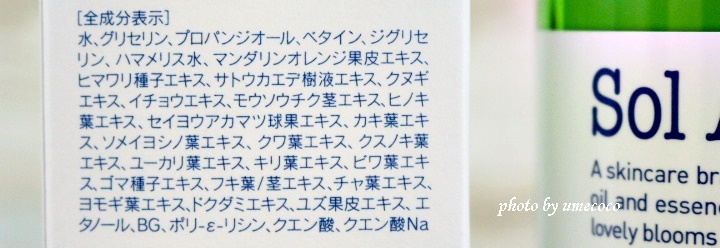 [全成分表示]
水、グリセリン、プロパンジオール、ベタイン、ジグリセ
リン、ハマメリス水、マンダリンオレンジ果皮エキス、
ヒマワリ種子エキス、サトウカエデ樹液エキス、クヌギ
エキス、イチョウエキス、モウソウチク茎エキス、ヒノキ
葉エキス、セイヨウアカマツ球果エキス、カキ葉エキ
ス、ソメイヨシノ葉エキス、クワ葉エキス、クスノキ葉
エキス、ユーカリ葉エキス、キリ葉エキス、ビワ葉エキ
ス、ゴマ種子エキス、フキ葉/茎エキス、チャ葉エキス、
ヨモギ葉エキス、ドクダミエキス、ユズ果皮エキス、エ
タノール、BG、ポリ-ε-リシン、クエン酸、クエン酸Na
Sol
A skincare br
oil and essen
lovely blooms
photo by umecoco